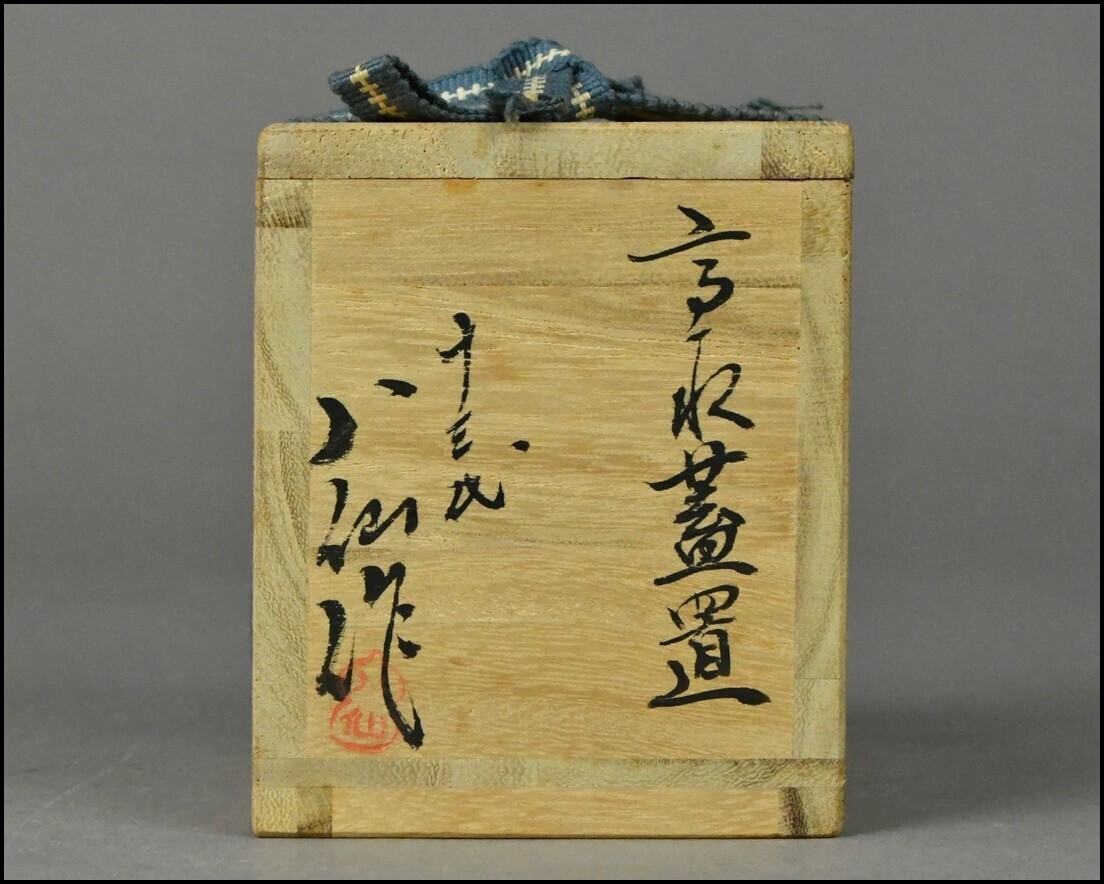 高取蓋置
十三代
八仙作
八仙